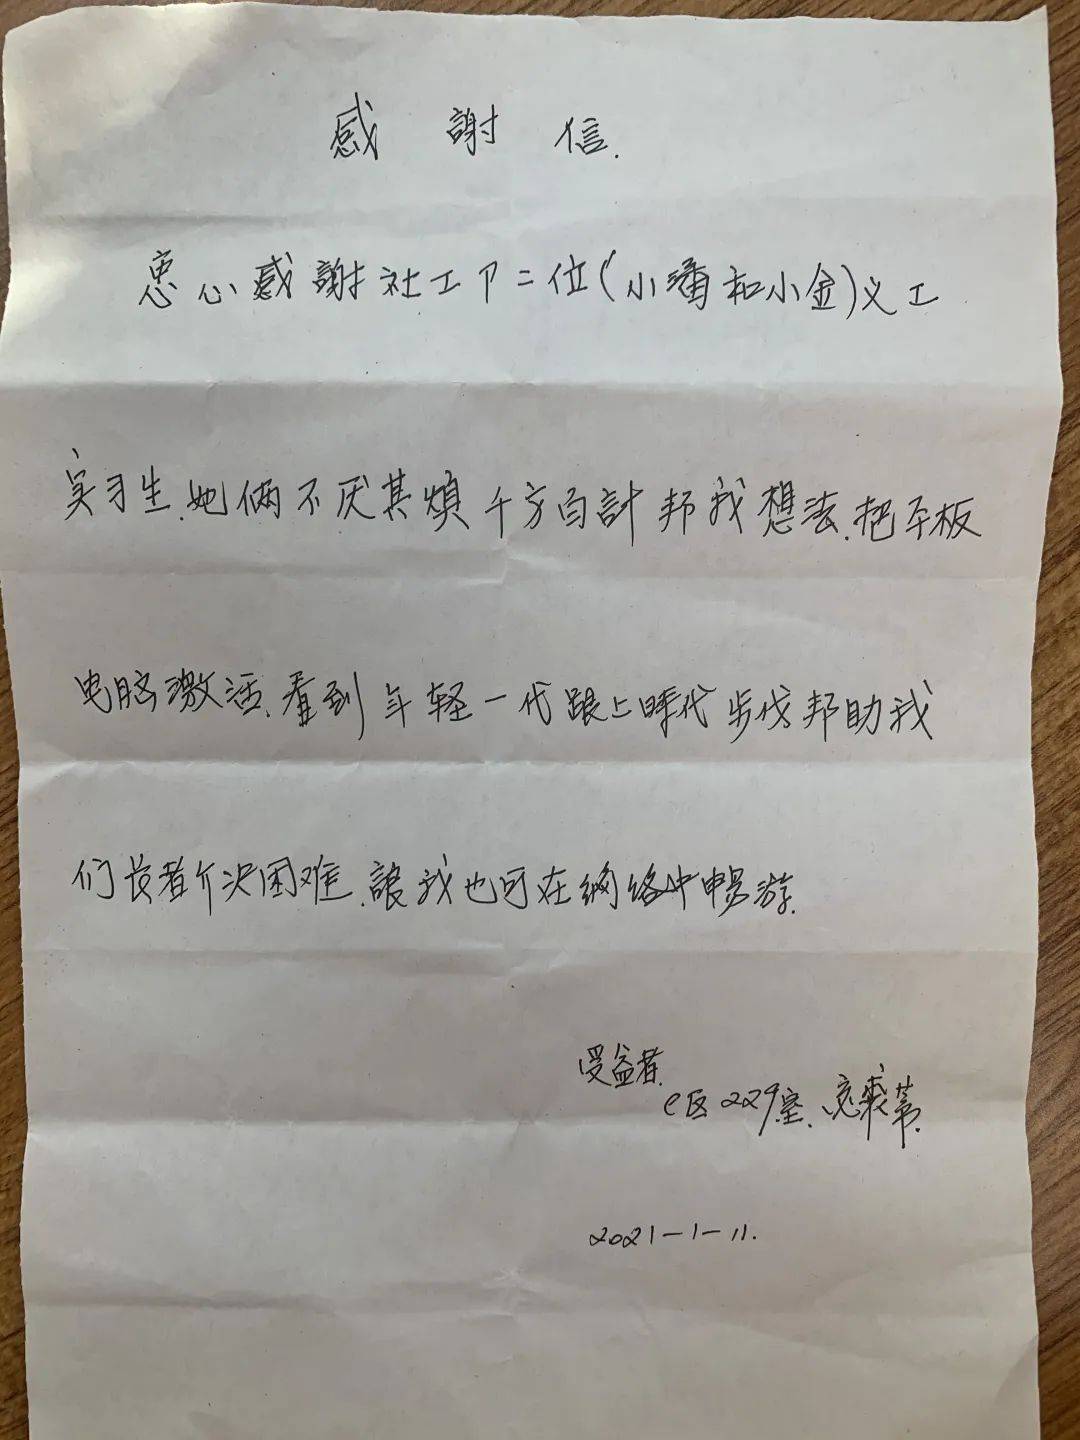 感謝信.
衷心感謝社工卩二位(小潘和小金)义工
实习生.她俩不厌其煩千方百計邦我想法.把平板
电脑激活.看到年轻一代跟上時代步伐邦助我
们长者介决困难.讓我也可在網络中畅游.
受益者.
C区229室.
2021-1-11.